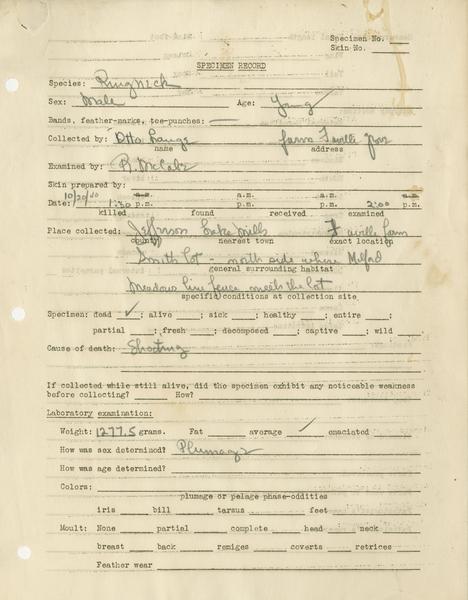 Specimen No. ____
Skin No. ____
SPECIMEN RECORD
Species: Ringneck
Sex: Male Age: Young
Bands, feather-marks, toe-punches:
Collected by: Otto Lange farm Faville
name address
Examined by: R. McCabe
Skin prepared by:
10/20/40 a.m. a.m. a.m. a.m.
Date: 1:30 p.m. p.m. p.m. 2:00 p.m.
killed found received examined
Place collected: Jefferson Lake Mills Faville farm
county nearest town exact location
Smith lot - north side where Milford
general surrounding habitat
Meadow line fence meets the lot
specific conditions at collection site
Specimen: dead ✓; alive ___; sick ___; healthy ___; entire ___;
partial ___; fresh ___; decomposed ___; captive ___; wild ___
Cause of death: Shooting
If collected while still alive, did the specimen exhibit any noticeable weakness
before collecting? ____ How? ____
Laboratory examination:
Weight: 1277.5 grams. Fat ____ average ✓ emaciated ____
How was sex determined? Plumage
How was age determined?
Colors:
plumage or pelage phase-oddities
iris ____ bill ____ tarsus ____ feet ____
Moult: None ____ partial ____ complete ____ head ____ neck ____
breast ____ back ____ remiges ____ coverts ____ retrices ____
Feather wear ____